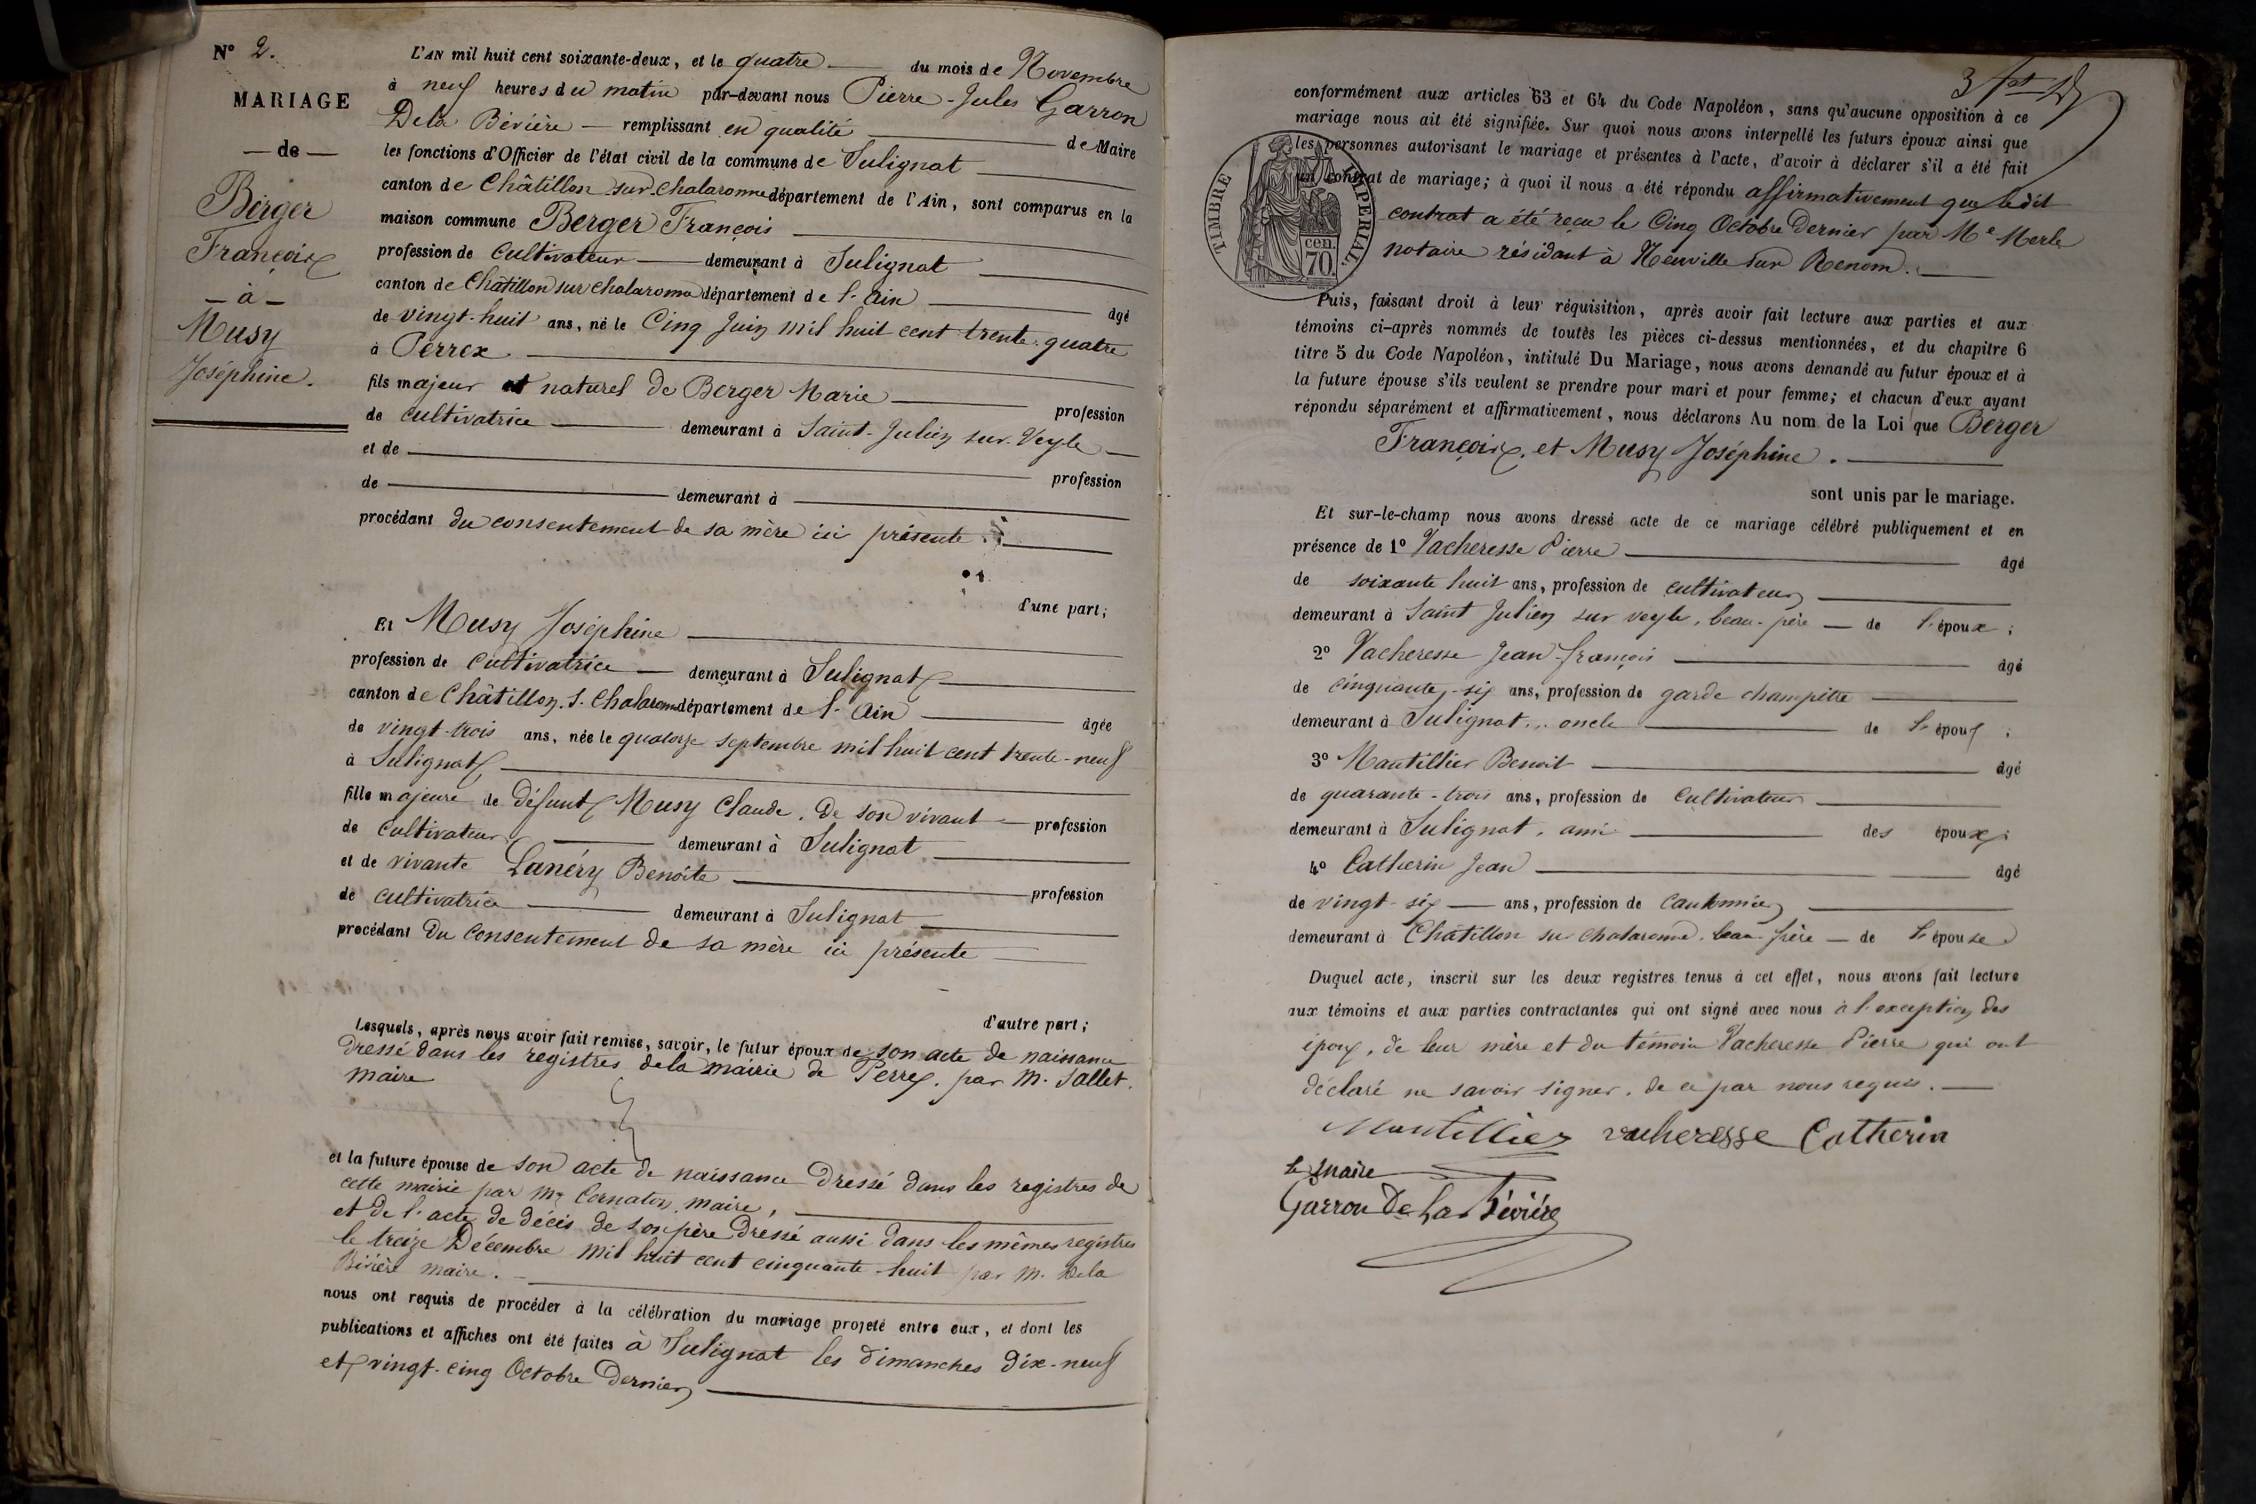 N° 2.
MARIAGE
— de —
Berger
François
— à —
Musy
Joséphine.
L'AN mil huit cent soixante-deux, et le quatre du mois de Novembre
à neuf heures du matin par-devant nous Pierre-Jules Garron
De la Bévière — remplissant en qualité de Maire
les fonctions d'Officier de l'état civil de la commune de Sulignat
canton de Châtillon sur Chalaronne département de l'Ain, sont comparus en la
maison commune Berger François
profession de cultivateur demeurant à Sulignat
canton de Châtillon sur Chalaronne département de l'Ain
âgé
de vingt-huit ans, né le Cinq Juin mil huit cent trente-quatre
à Perrex
fils majeur et naturel de Berger Marie
profession
de cultivatrice demeurant à Saint-Julien sur Veyle
et de
profession
de demeurant à
procédant du consentement de sa mère ici présente.
d'une part;
Et Musy Joséphine
profession de cultivatrice — demeurant à Sulignat
canton de Châtillon s. Chalaronne département de l'Ain
âgée
de vingt-trois ans, née le quatorze septembre mil huit cent trente-neuf
à Sulignat
fille majeure de défunt Musy Claude, de son vivant — profession
de cultivateur demeurant à Sulignat
et de vivante Lanéry Benoîte
profession
de cultivatrice demeurant à Sulignat
procédant du consentement de sa mère ici présente
d'autre part;
Lesquels, après nous avoir fait remise, savoir, le futur époux de son acte de naissance
dressé dans les registres de la mairie de Perrex, par M. Sallet,
maire
et la future épouse de son acte de naissance dressé dans les registres de
cette mairie par Mr Cornaton, maire,
et de l'acte de décès de son père dressé aussi dans les mêmes registres
le treize Décembre mil huit cent cinquante-huit par M. Dela
Bévière maire.
nous ont requis de procéder à la célébration du mariage projeté entre eux, et dont les
publications et affiches ont été faites à Sulignat les dimanches dix-neuf
et vingt-cinq Octobre dernier
3
conformément aux articles 63 et 64 du Code Napoléon, sans qu'aucune opposition à ce
mariage nous ait été signifiée. Sur quoi nous avons interpellé les futurs époux ainsi que
les personnes autorisant le mariage et présentes à l'acte, d'avoir à déclarer s'il a été fait
un contrat de mariage; à quoi il nous a été répondu affirmativement que ledit
contrat a été reçu le Cinq Octobre dernier par Me Merle
notaire résidant à Neuville sur Renom.
TIMBRE IMPERIAL.
cen.
70
Puis, faisant droit à leur réquisition, après avoir fait lecture aux parties et aux
témoins ci-après nommés de toutes les pièces ci-dessus mentionnées, et du chapitre 6
titre 5 du Code Napoléon, intitulé Du Mariage, nous avons demandé au futur époux et à
la future épouse s'ils veulent se prendre pour mari et pour femme; et chacun d'eux ayant
répondu séparément et affirmativement, nous déclarons Au nom de la Loi que Berger
François, et Musy Joséphine.
sont unis par le mariage.
Et sur-le-champ nous avons dressé acte de ce mariage célébré publiquement et en
présence de 1° Vacheresse Pierre
âgé
de soixante huit ans, profession de cultivateur
demeurant à Saint Julien sur Veyle, beau-père — de l'époux;
2° Vacheresse Jean-françois
âgé
de cinquante-six ans, profession de garde champêtre
demeurant à Sulignat, oncle de l'époux;
3° Mantillier Benoit
âgé
de quarante-trois ans, profession de cultivateur
demeurant à Sulignat, ami des époux;
4° Catherin Jean
âgé
de vingt-six — ans, profession de cantonnier
demeurant à Châtillon sur Chalaronne, beau-frère — de l'épouse
Duquel acte, inscrit sur les deux registres tenus à cet effet, nous avons fait lecture
aux témoins et aux parties contractantes qui ont signé avec nous à l'exception des
époux, de leur mère et du témoin Vacheresse Pierre qui ont
déclaré ne savoir signer, de ce par nous requis.
Mantillier vacheresse Catherin
le maire
Garron De La Bévière